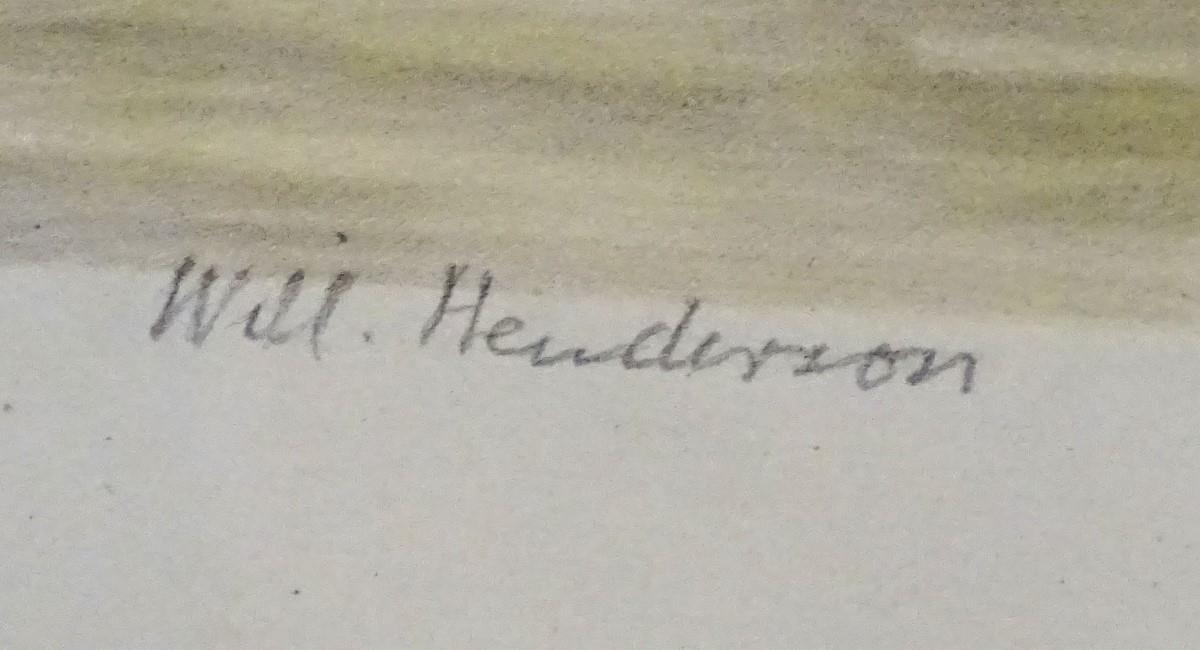 Will. Henderson